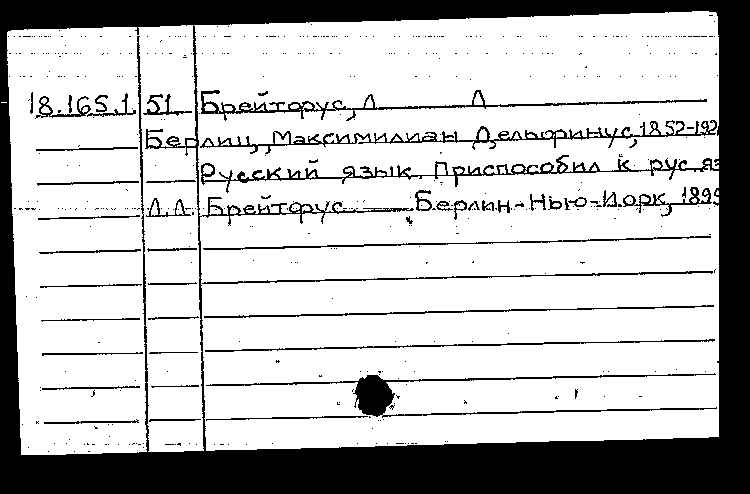 18.165.1 51 Брейторус, Л Л
Берлиц, Максимилиан Дельфринус, 1852-192
Русский язык. Приспособил к рус яз
Л.Л. Брейторус Берлин-Нью-Йорк, 1899